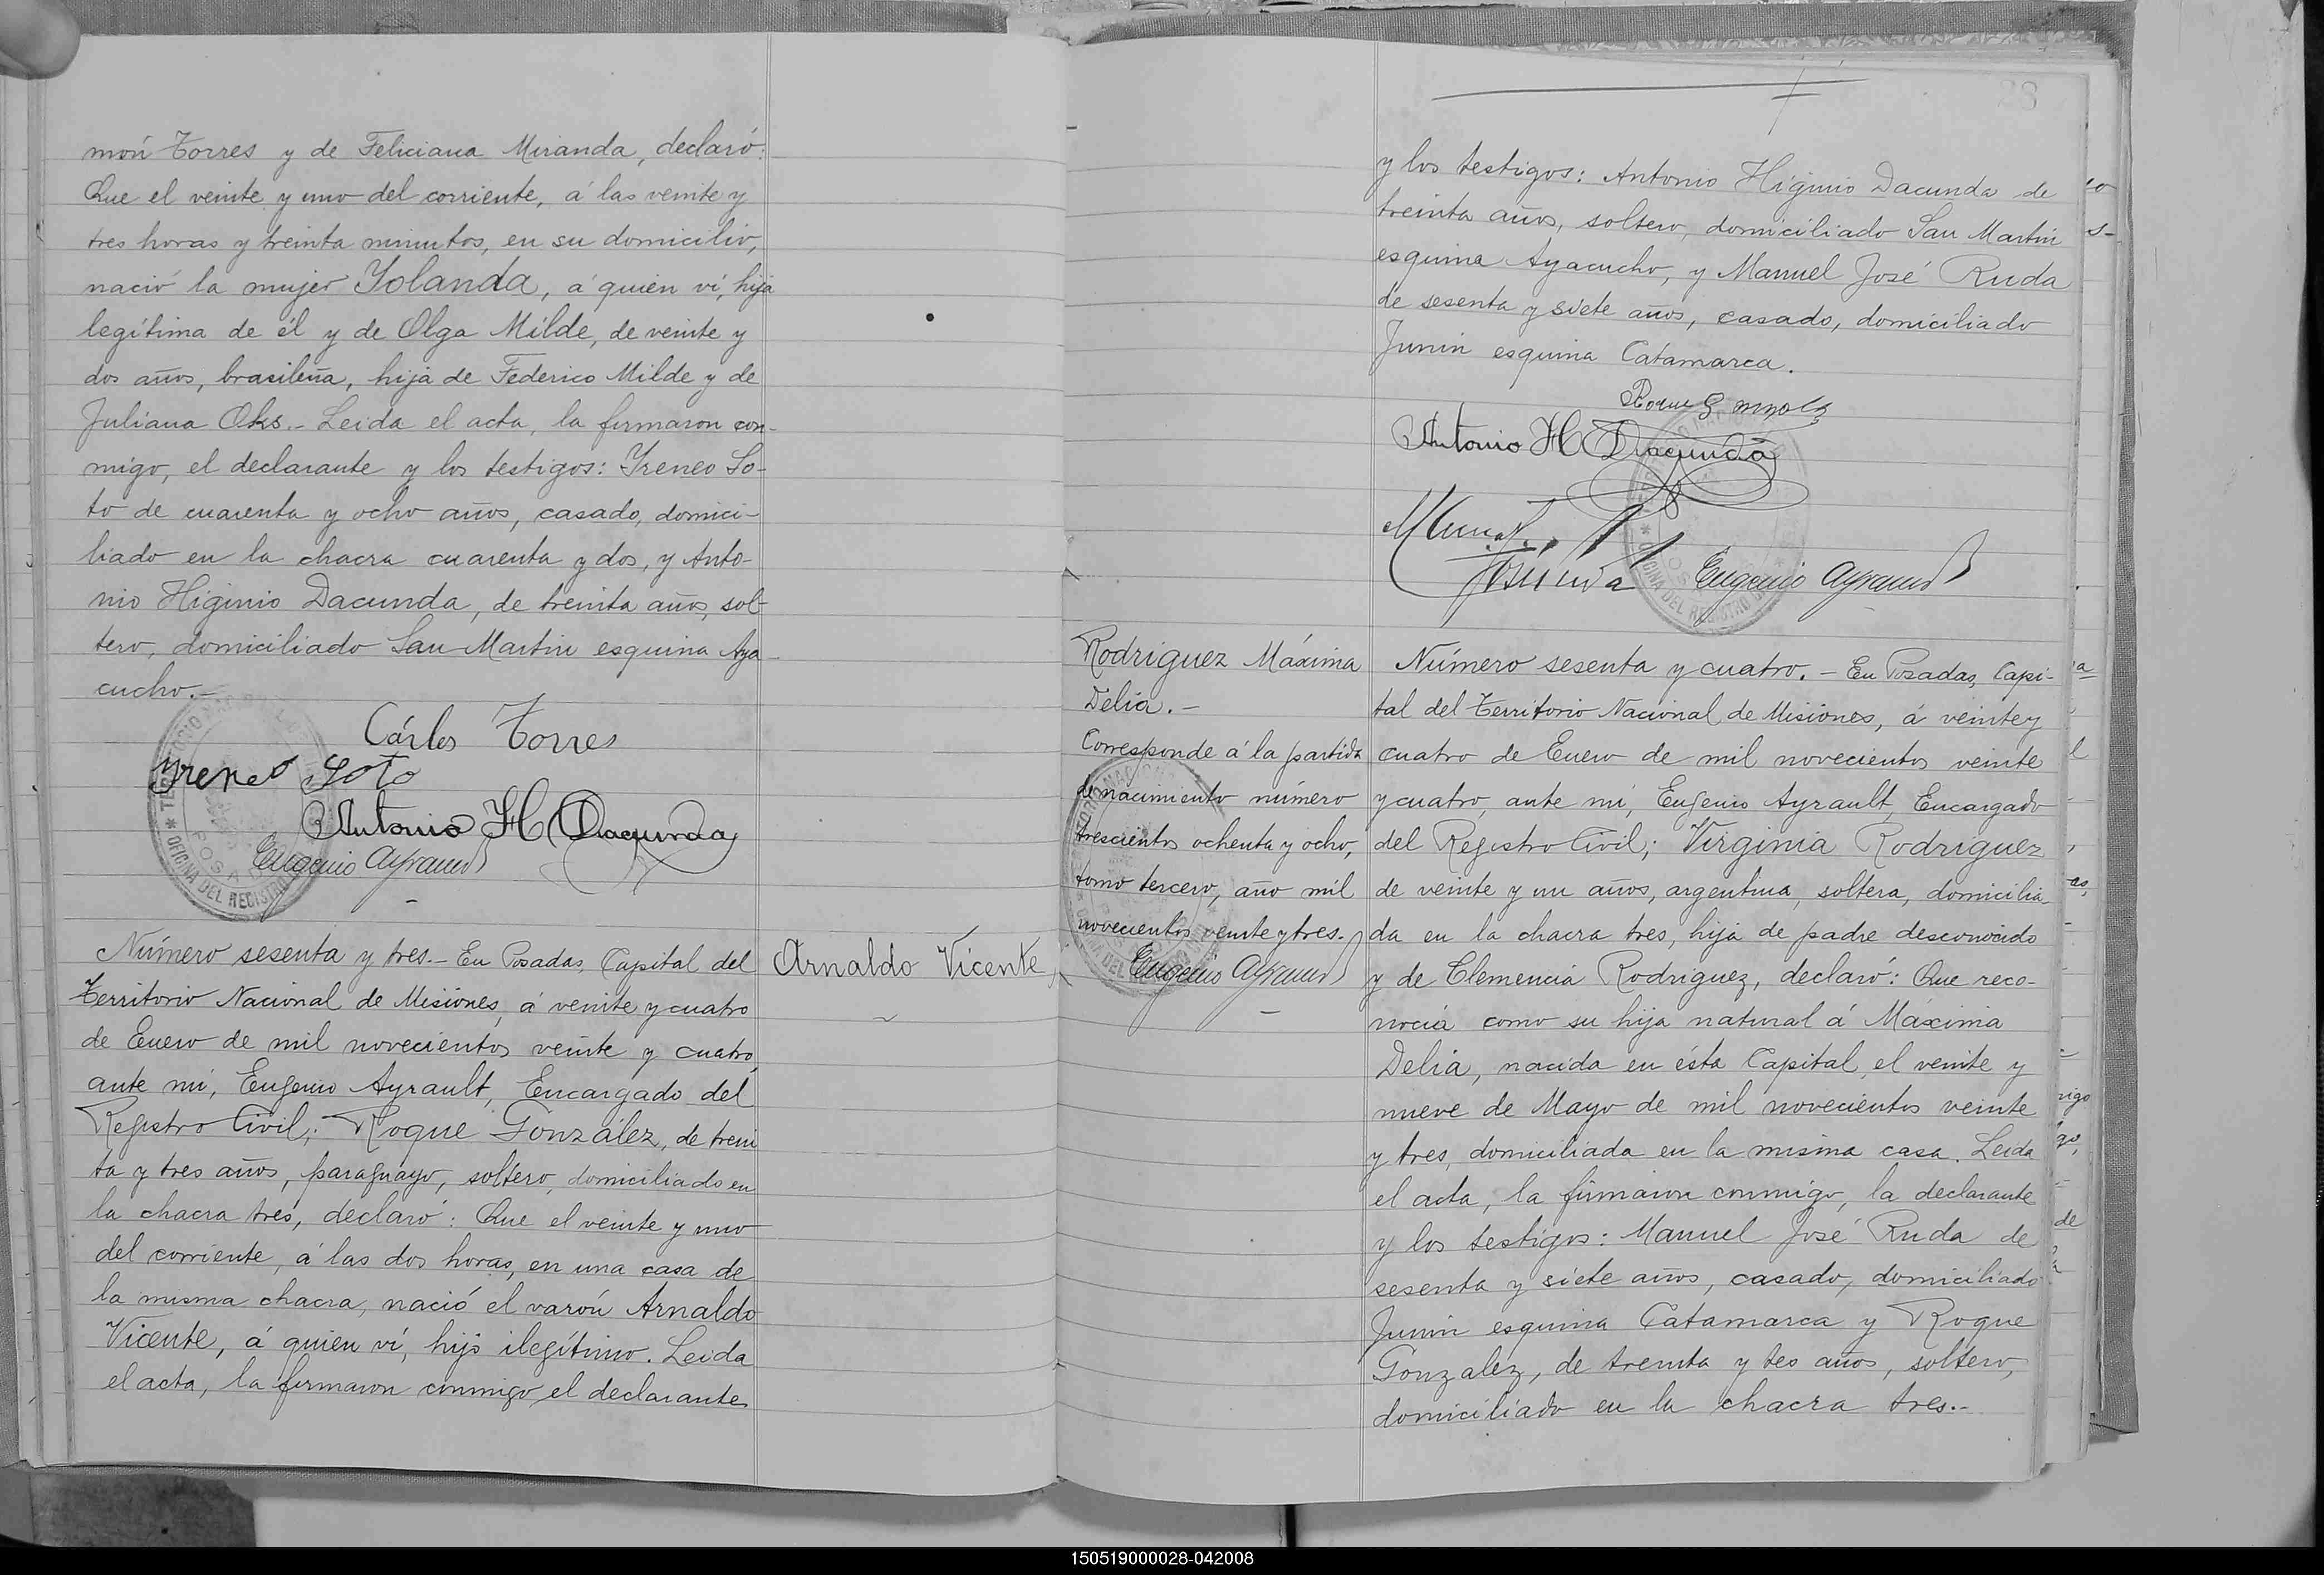 món Torres y de Feliciana Miranda, declaró:
Que el veinte y uno del corriente, á las veinte y
tres horas y treinta minutos, en su domicilio,
nació la mujer Yolanda, á quien ví, hija
legítima de él y de Olga Milde, de veinte y
dos años, brasileña, hija de Federico Milde y de
Juliana Oks.- Leida el acta, la firmaron con-
migo, el declarante y los testigos: Yreneo So-
to de cuarenta y ocho años, casado, domici-
liado en la chacra cuarenta y dos, y Anto-
nio Higinio Dacunda, de treinta años, sol-
tero, domiciliado San Martin esquina Aya-
cucho.-
Cárlos Torres
Yreneo Soto
Antonio H Dacunda
Eugenio Ayrault
Número sesenta y tres.- En Posadas, Capital del
Territorio Nacional de Misiones, á veinte y cuatro
de Enero de mil novecientos veinte y cuatro,
ante mí, Eugenio Ayrault, Encargado del
Registro Civil; Roque González, de trein
ta y tres años, paraguayo, soltero, domiciliado en
la chacra tres, declaró: Que el veinte y uno
del corriente, á las dos horas, en una casa de
la misma chacra, nació el varón Arnaldo
Vicente, á quien ví, hijo ilegítimo. Leida
el acta, la firmaron conmigo, el declarante
Arnaldo Vicente
28
y los testigos: Antonio Higinio Dacunda de
treinta años, soltero, domiciliado San Martin
esquina Ayacucho, y Manuel José Ruda
de sesenta y siete años, casado, domiciliado
Junin esquina Catamarca.
Antonio H Dacunda
Eugenio Ayrault
Rodriguez Máxima
Delia.-
Corresponde á la partida
de nacimiento número
trescientos ochenta y ocho,
tomo tercero, año mil
novecientos veinte y tres.
Eugenio Ayrault
Número sesenta y cuatro.- En Posadas, Capi-
tal del Territorio Nacional de Misiones, á veinte y
cuatro de Enero de mil novecientos veinte
y cuatro, ante mí, Eugenio Ayrault, Encargado
del Registro Civil; Virginia Rodriguez
de veinte y un años, argentina, soltera, domicilia-
da en la chacra tres, hija de padre desconocido
y de Clemencia Rodriguez, declaró: Que reco-
nocía como su hija natural á Máxima
Delia, nacida en ésta Capital, el veinte y
nueve de Mayo de mil novecientos veinte
y tres, domiciliada en la misma casa. Leida
el acta, la firmaron conmigo, la declarante
y los testigos: Manuel José Ruda de
sesenta y siete años, casado, domiciliado
Junin esquina Catamarca y Roque
Gonzalez, de treinta y tes años, soltero,
domiciliado en la chacra tres.-
150519000028-042008